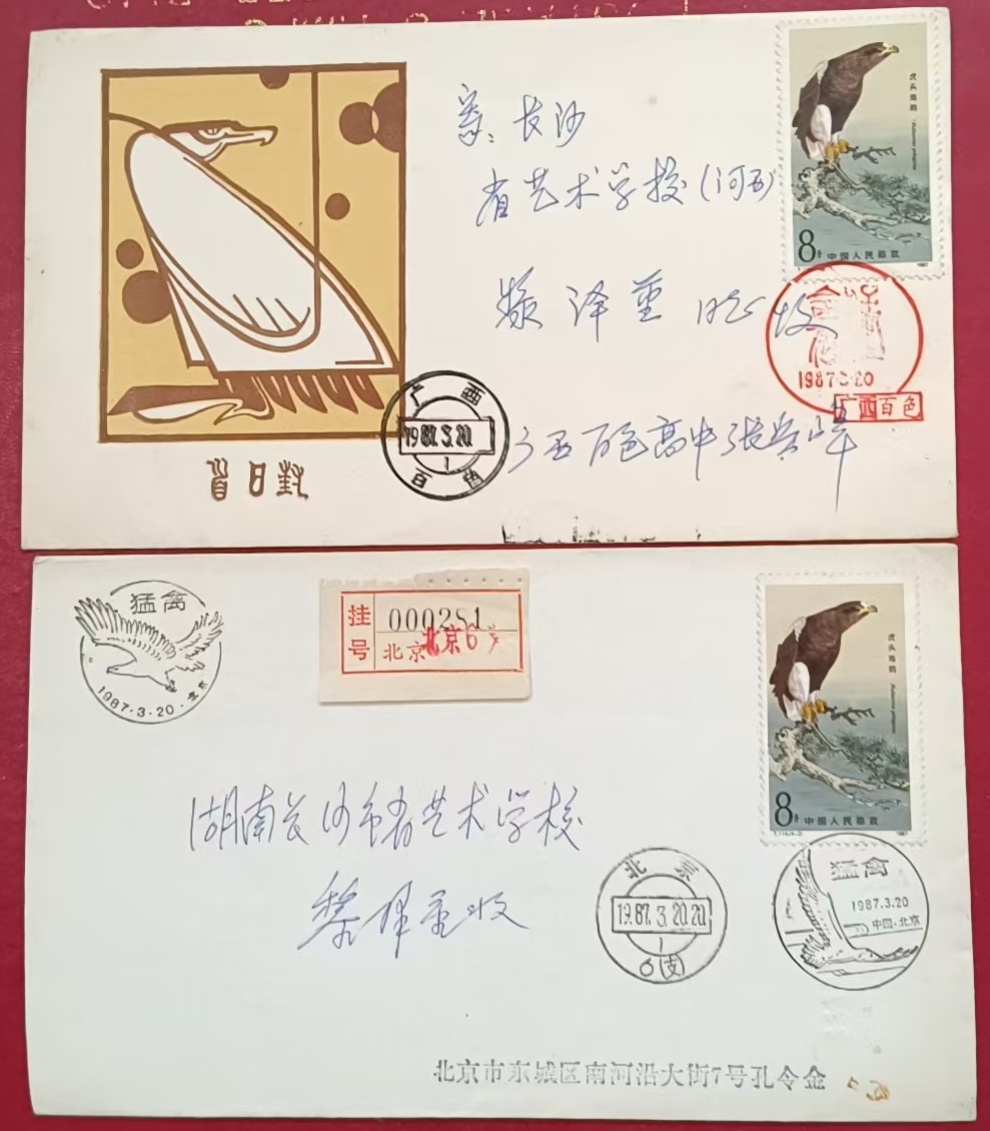 长沙
省艺术学校(河西)
虎头海鵰
8分 中国人民邮政
1987
1987.3.20
广西百色
广西
1987.3.20.
1
百色
广西百色高中张
首日封
猛禽
1987·3·20·北京
挂号
000281
北京
北京6
虎头海鵰
8分 中国人民邮政
1987
湖南长沙市省艺术学校
黎泽重收
北京
1987.3.20.20
1
6(支)
猛禽
1987.3.20
中国·北京
北京市东城区南河沿大街7号孔令金